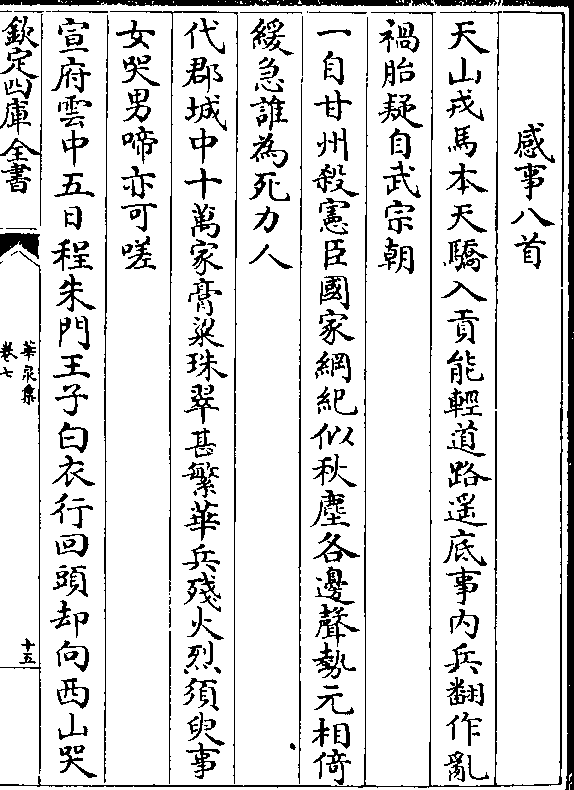 感事八首
天山戎馬本天驕入貢能輕道路遥底事内兵翻作亂
禍胎疑自武宗朝
一自甘州殺憲臣國家綱紀似秋塵各邊聲勢元相倚
緩急誰為死力人
代郡城中十萬家膏粱珠翠甚繁華兵殘火烈須臾事
女哭男啼亦可嗟
宣府雲中五日程朱門王子白衣行回頭却向西山哭
欽定四庫全書
華泉集
卷七
十五